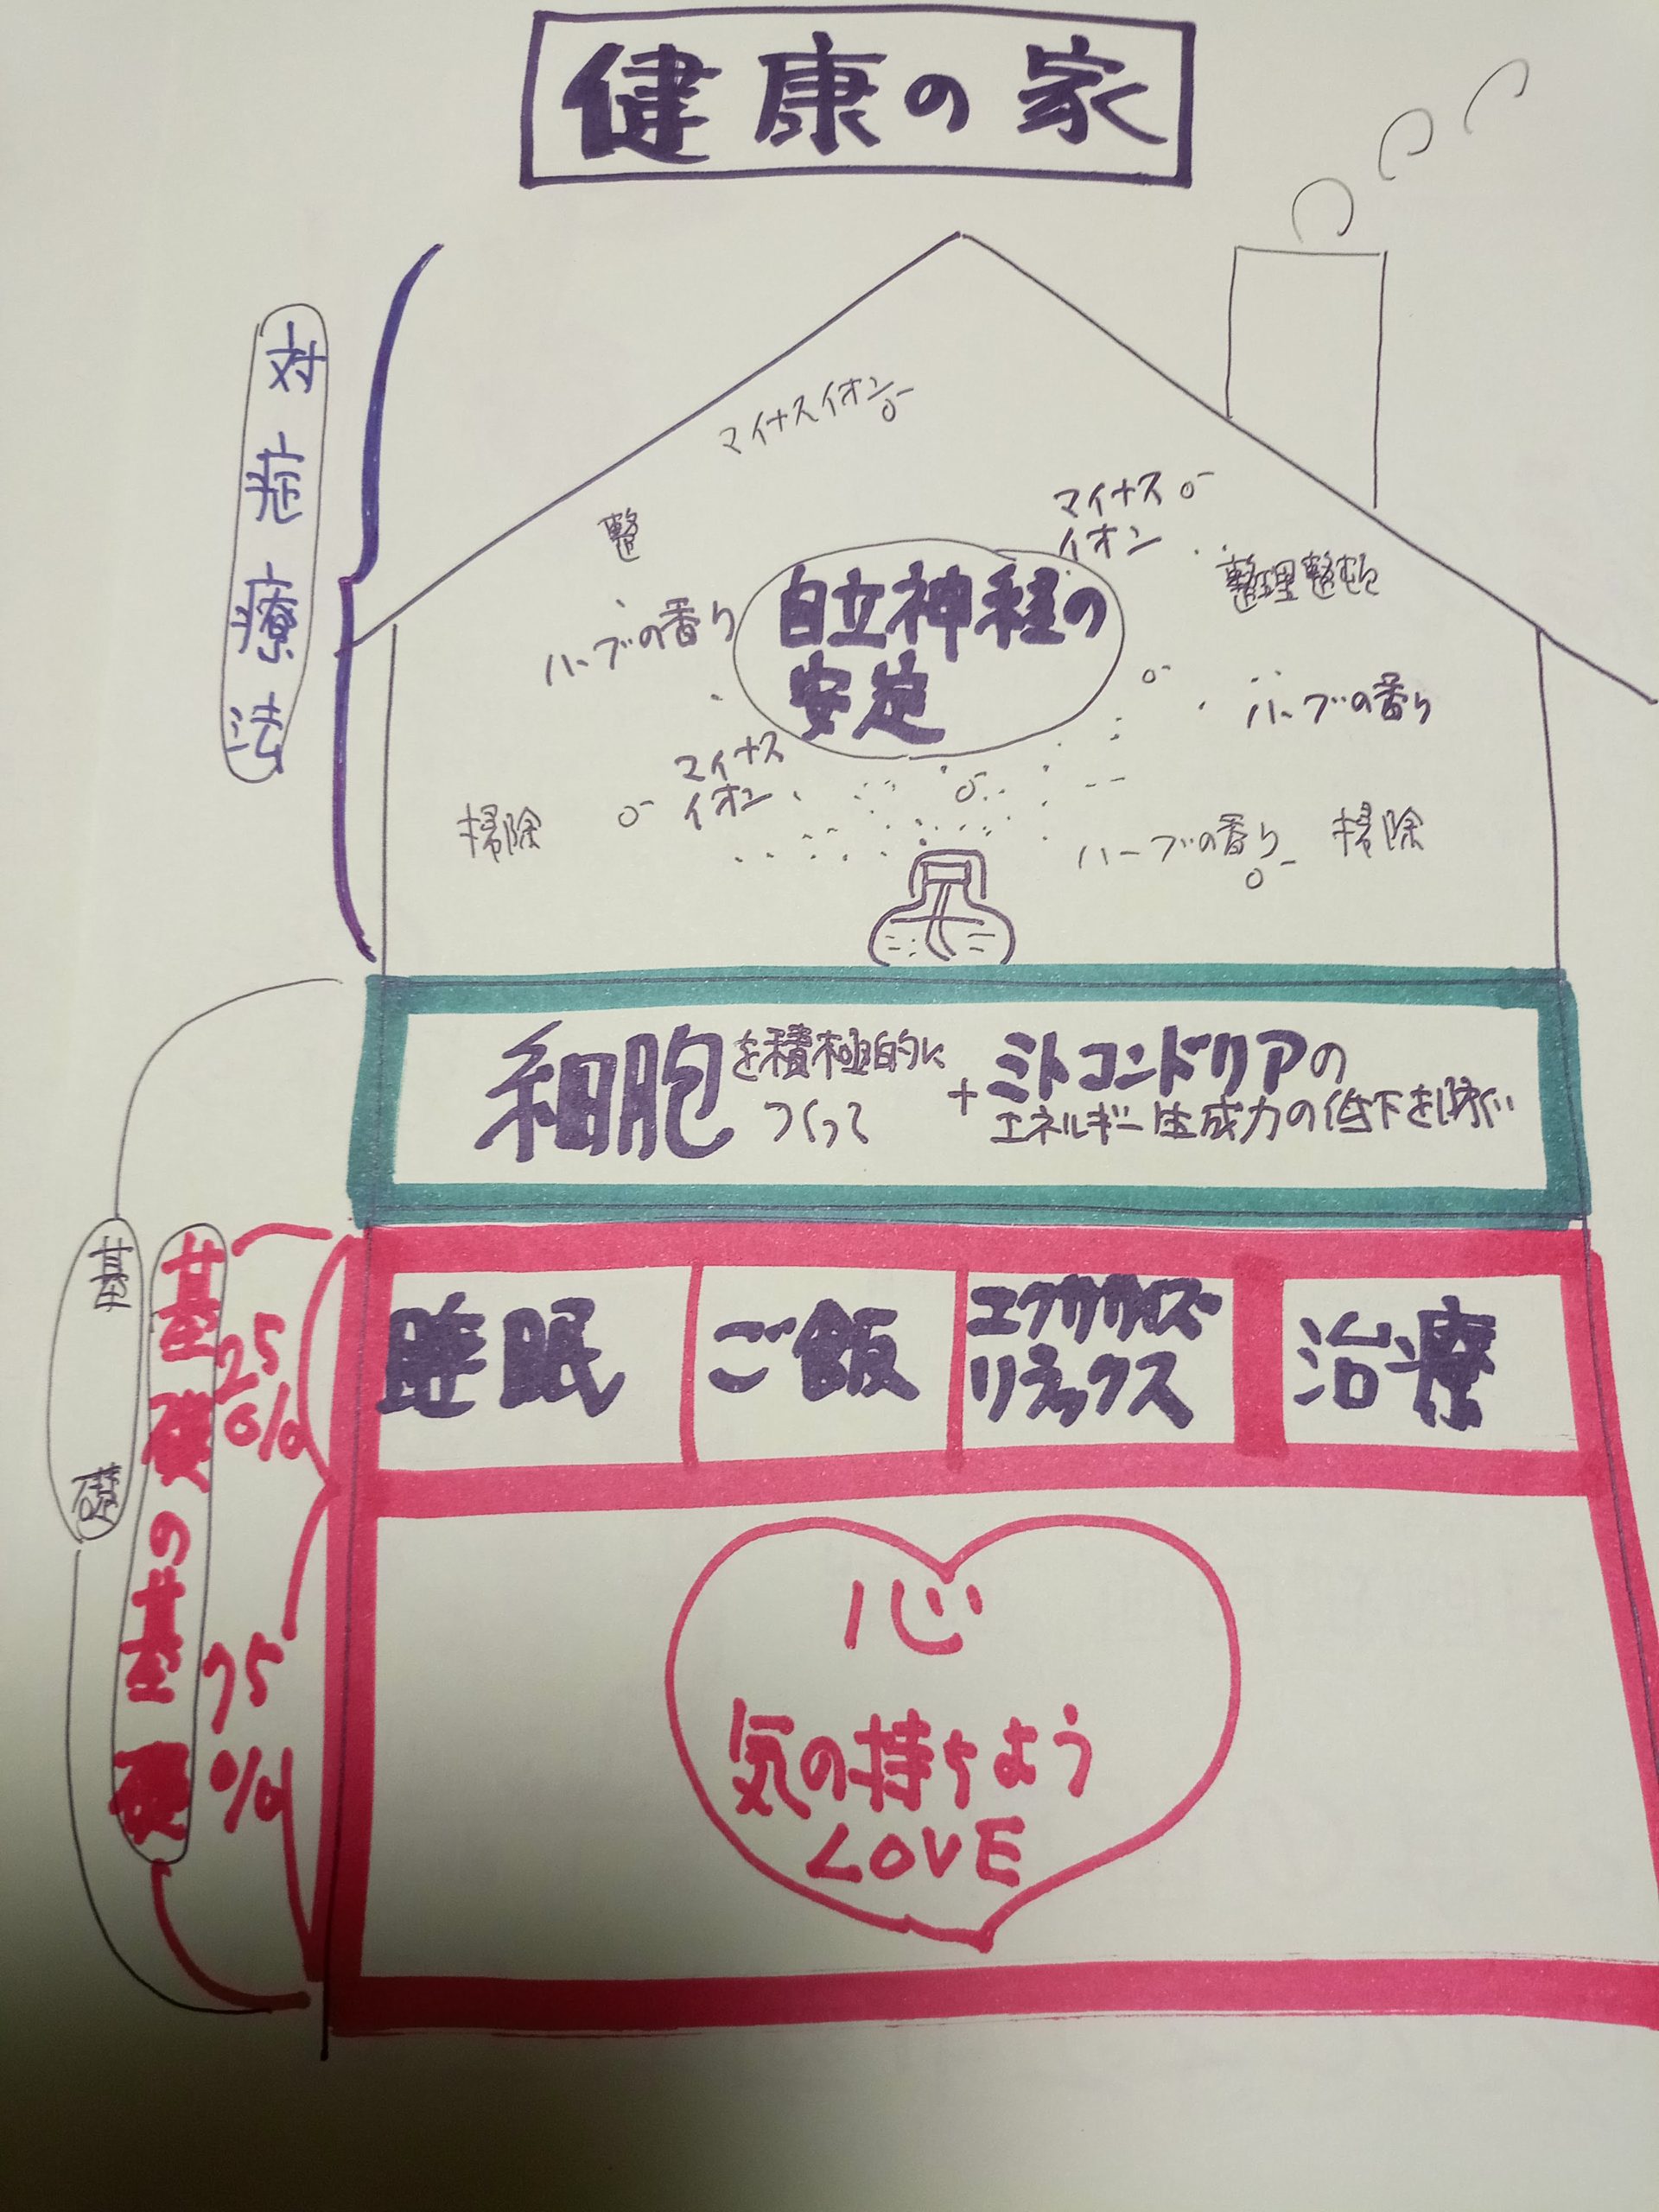 健康の家
対症療法
マイナスイオン
マイナス
イオン
整
整理整頓
ハーブの香り
自立神経の
安定
ハーブの香り
マイナス
イオン
掃除
ハーブの香り
掃除
細胞を積極的に
つくって
+ミトコンドリアの
エネルギー生成力の低下を防ぐ
基礎
基礎の基礎
25
%
睡眠
ご飯
エクササイズ
リラックス
治療
75
%
心
気の持ちよう
LOVE